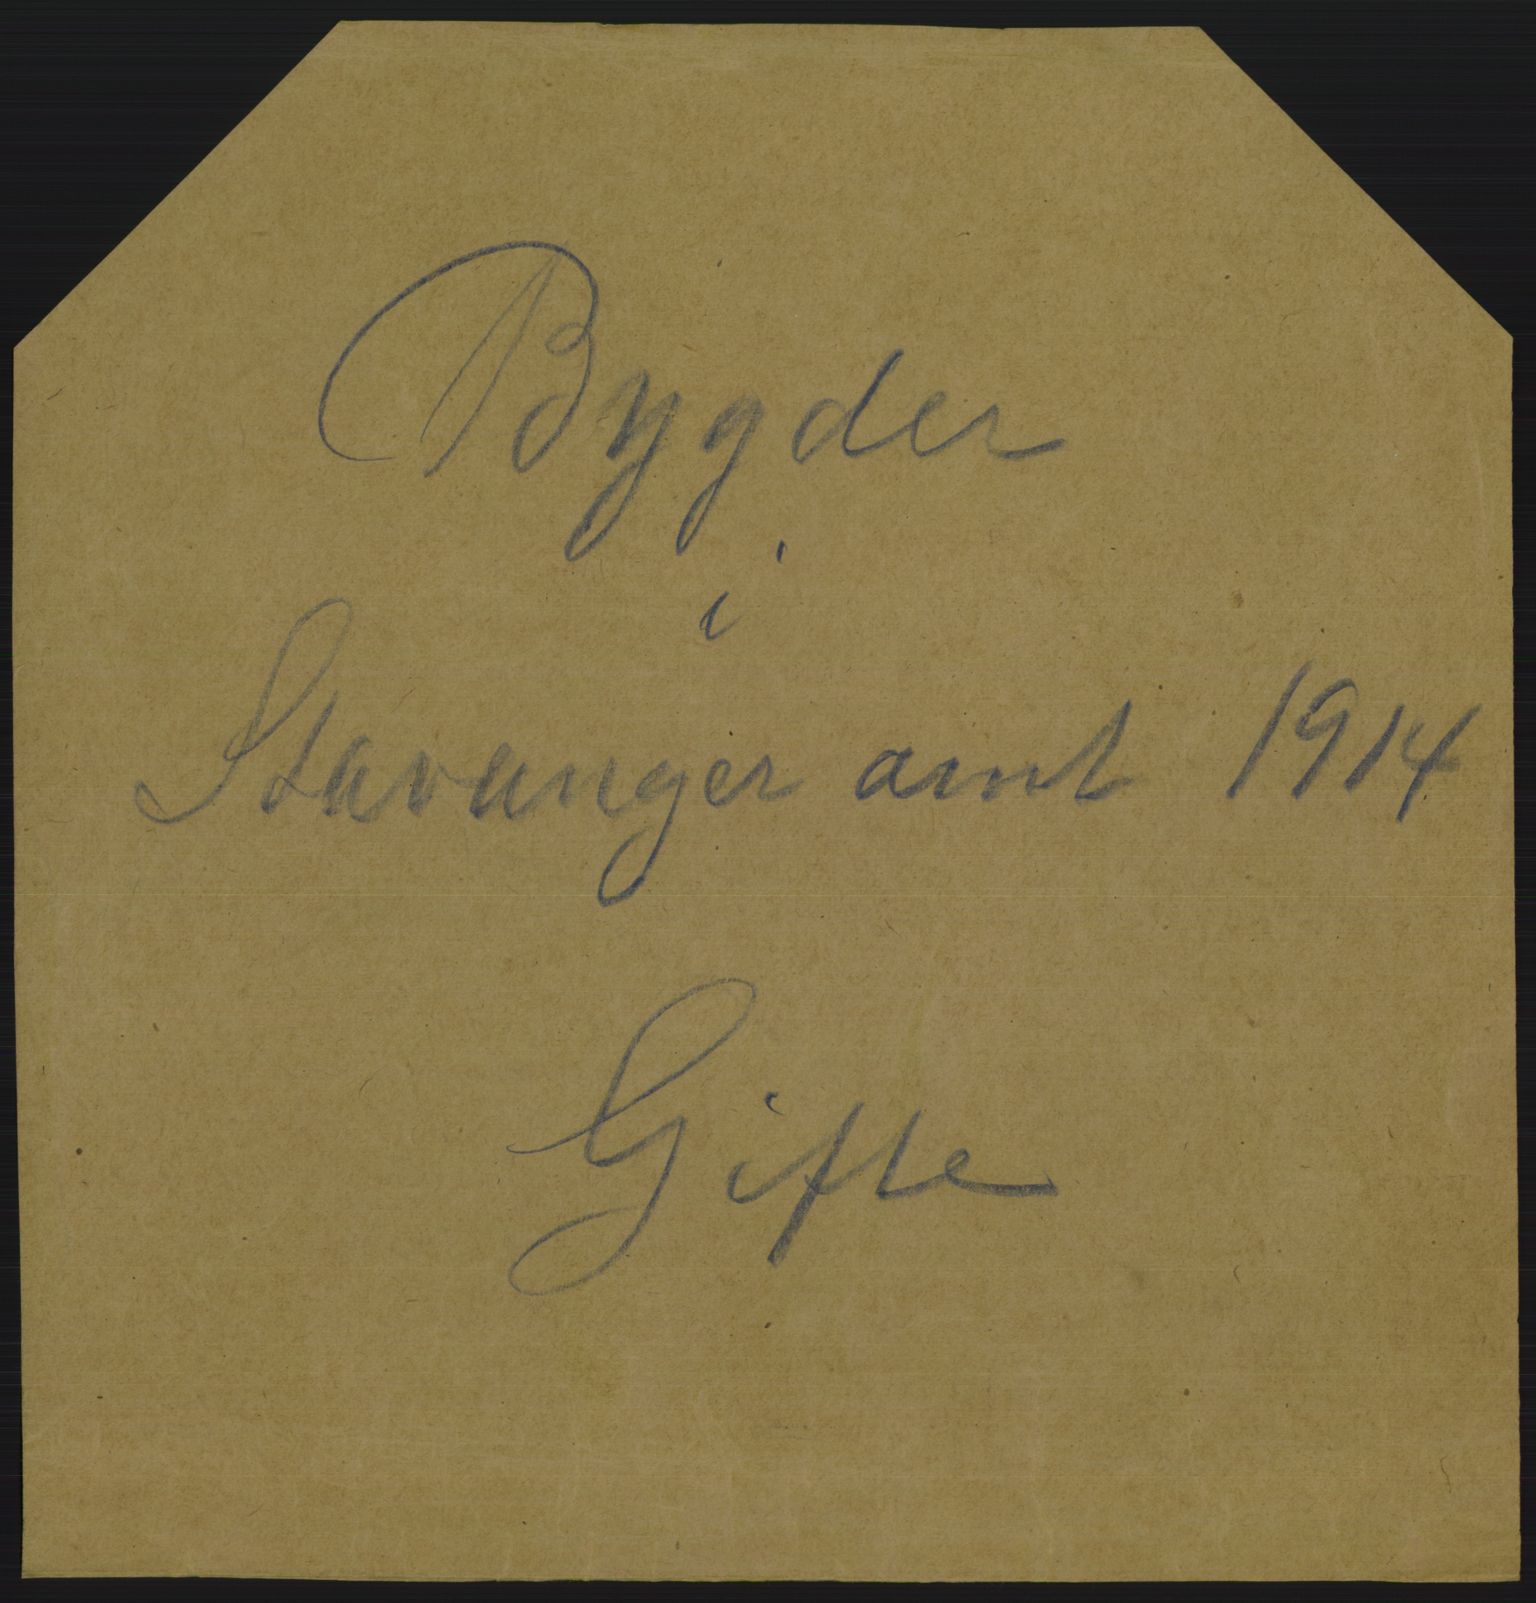 Bygder
i
Stavanger amt 1914
Gifte